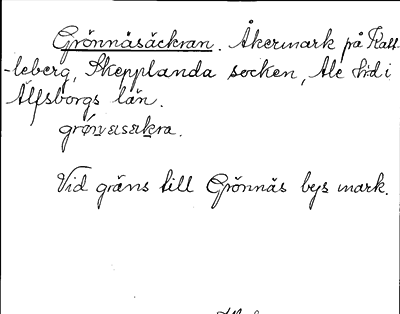 Grönnäsäckran. Åkermark på Katt-
-leberg, Skepplanda socken, Ale hd i
Älfsborgs län.
grønɛsɛkra.
Vid gräns till Grönnäs bys mark.